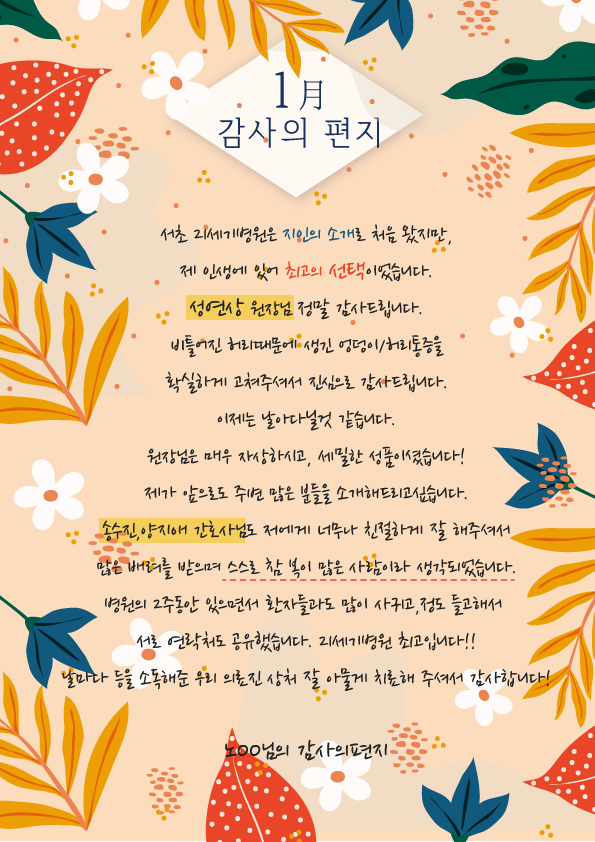 1月
감사의 편지
서초 21세기병원은 지인의 소개로 처음 왔지만,
제 인생에 있어 최고의 선택이었습니다.
성연상 원장님 정말 감사드립니다.
비틀어진 허리때문에 생긴 엉덩이/허리통증을
확실하게 고쳐주셔서 진심으로 감사드립니다.
이제는 날아다닐것 같습니다.
원장님은 매우 자상하시고, 세밀한 성품이셨습니다!
제가 앞으로도 주변 많은 분들을 소개해드리고싶습니다.
송수진,양지애 간호사님도 저에게 너무나 친절하게 잘 해주셔서
많은 배려를 받으며 스스로 참 복이 많은 사람이라 생각되었습니다.
병원의 2주동안 있으면서 환자들과도 많이 사귀고,정도 들고해서
서로 연락처도 공유했습니다. 21세기병원 최고입니다!!
날마다 등을 소독해준 우리 의료진 상처 잘 아물게 치료해 주셔서 감사합니다!
노OO님의 감사의편지